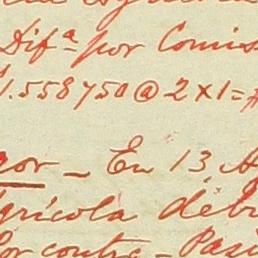 Difª por Comis
1.558750@2x1=
or - En 13 A
grícola débi
Por contra - Pasi